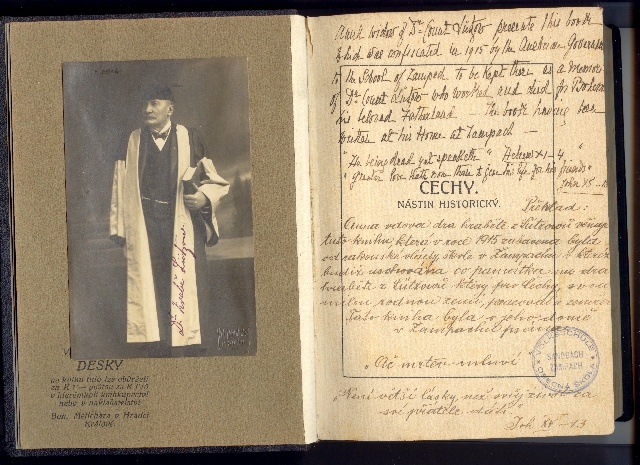 Dr. Louis Lützow
DESKY
na knihu tuto lze obdržeti
za K 1·— poštou za K 1·20
v kterémkoli knihkupectví
nebo v nakladatelství
Boh. Melichara v Hradci
Králové.
widow of Dr Count Lützow presents this book
which was confiscated in 1915 by the Austrian Government
to the School of Zampach to be kept there as a Memoir
of Dr Count Lützow who worked and died for Bohemia
his beloved Fatherland — the book having been
written at his Home at Zampach —
"He being dead yet speaketh" Hebrews XI-4
"Greater love hath non than to give his life for his friends"
John XV-13
ČECHY.
NÁSTIN HISTORICKÝ.
Překlad:
vdova dra hraběte z Lützowů věnuje
tuto knihu, která v roce 1915 zabavena byla
od rakouské vlády, škole v Žampachu
budiž uschována co památka na dra
hraběte z Lützowů který pro Čechy, svou
milou rodnou zemi, pracoval a zemřel
Tato kniha byla v jeho domě
v Žampachu psána
Ač mrtev mluví
"Není větší lásky, než
své přátele
Joh XV-13
OBECNÁ ŠKOLA
ŽAMPACH